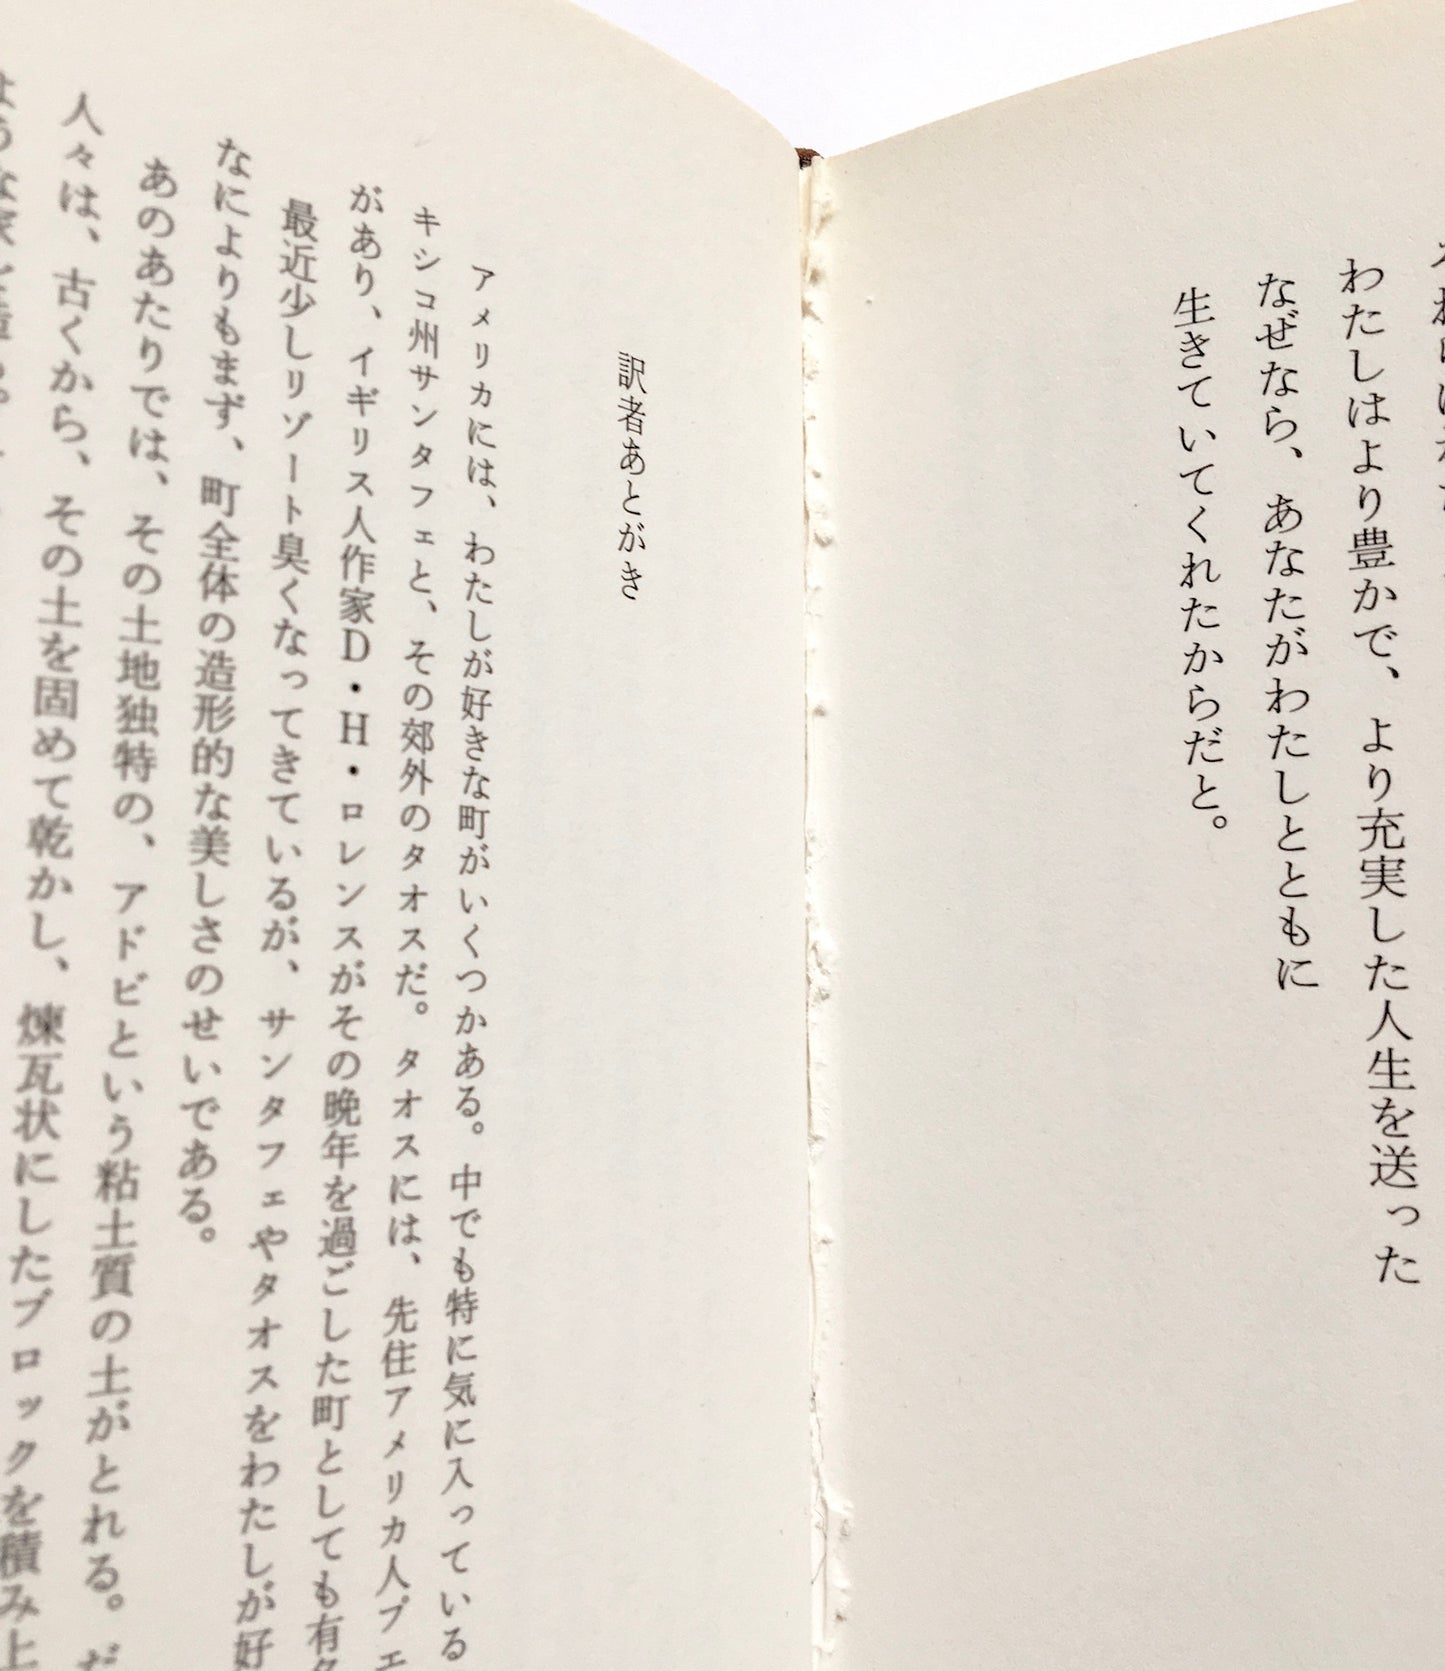 わたしはより豊かで、より充実した人生を送った
なぜなら、あなたがわたしとともに
生きていてくれたからだと。
訳者あとがき
アメリカには、わたしが好きな町がいくつかある。中でも特に気に入っている
キシコ州サンタフェと、その郊外のタオスだ。タオスには、先住アメリカ人プエ
があり、イギリス人作家D・H・ロレンスがその晩年を過ごした町としても有
最近少しリゾート臭くなってきているが、サンタフェやタオスをわたしが好
なによりもまず、町全体の造形的な美しさのせいである。
あのあたりでは、その土地独特の、アドビという粘土質の土がとれる。だ
人々は、古くから、その土を固めて乾かし、煉瓦状にしたブロックを積み上
ような家